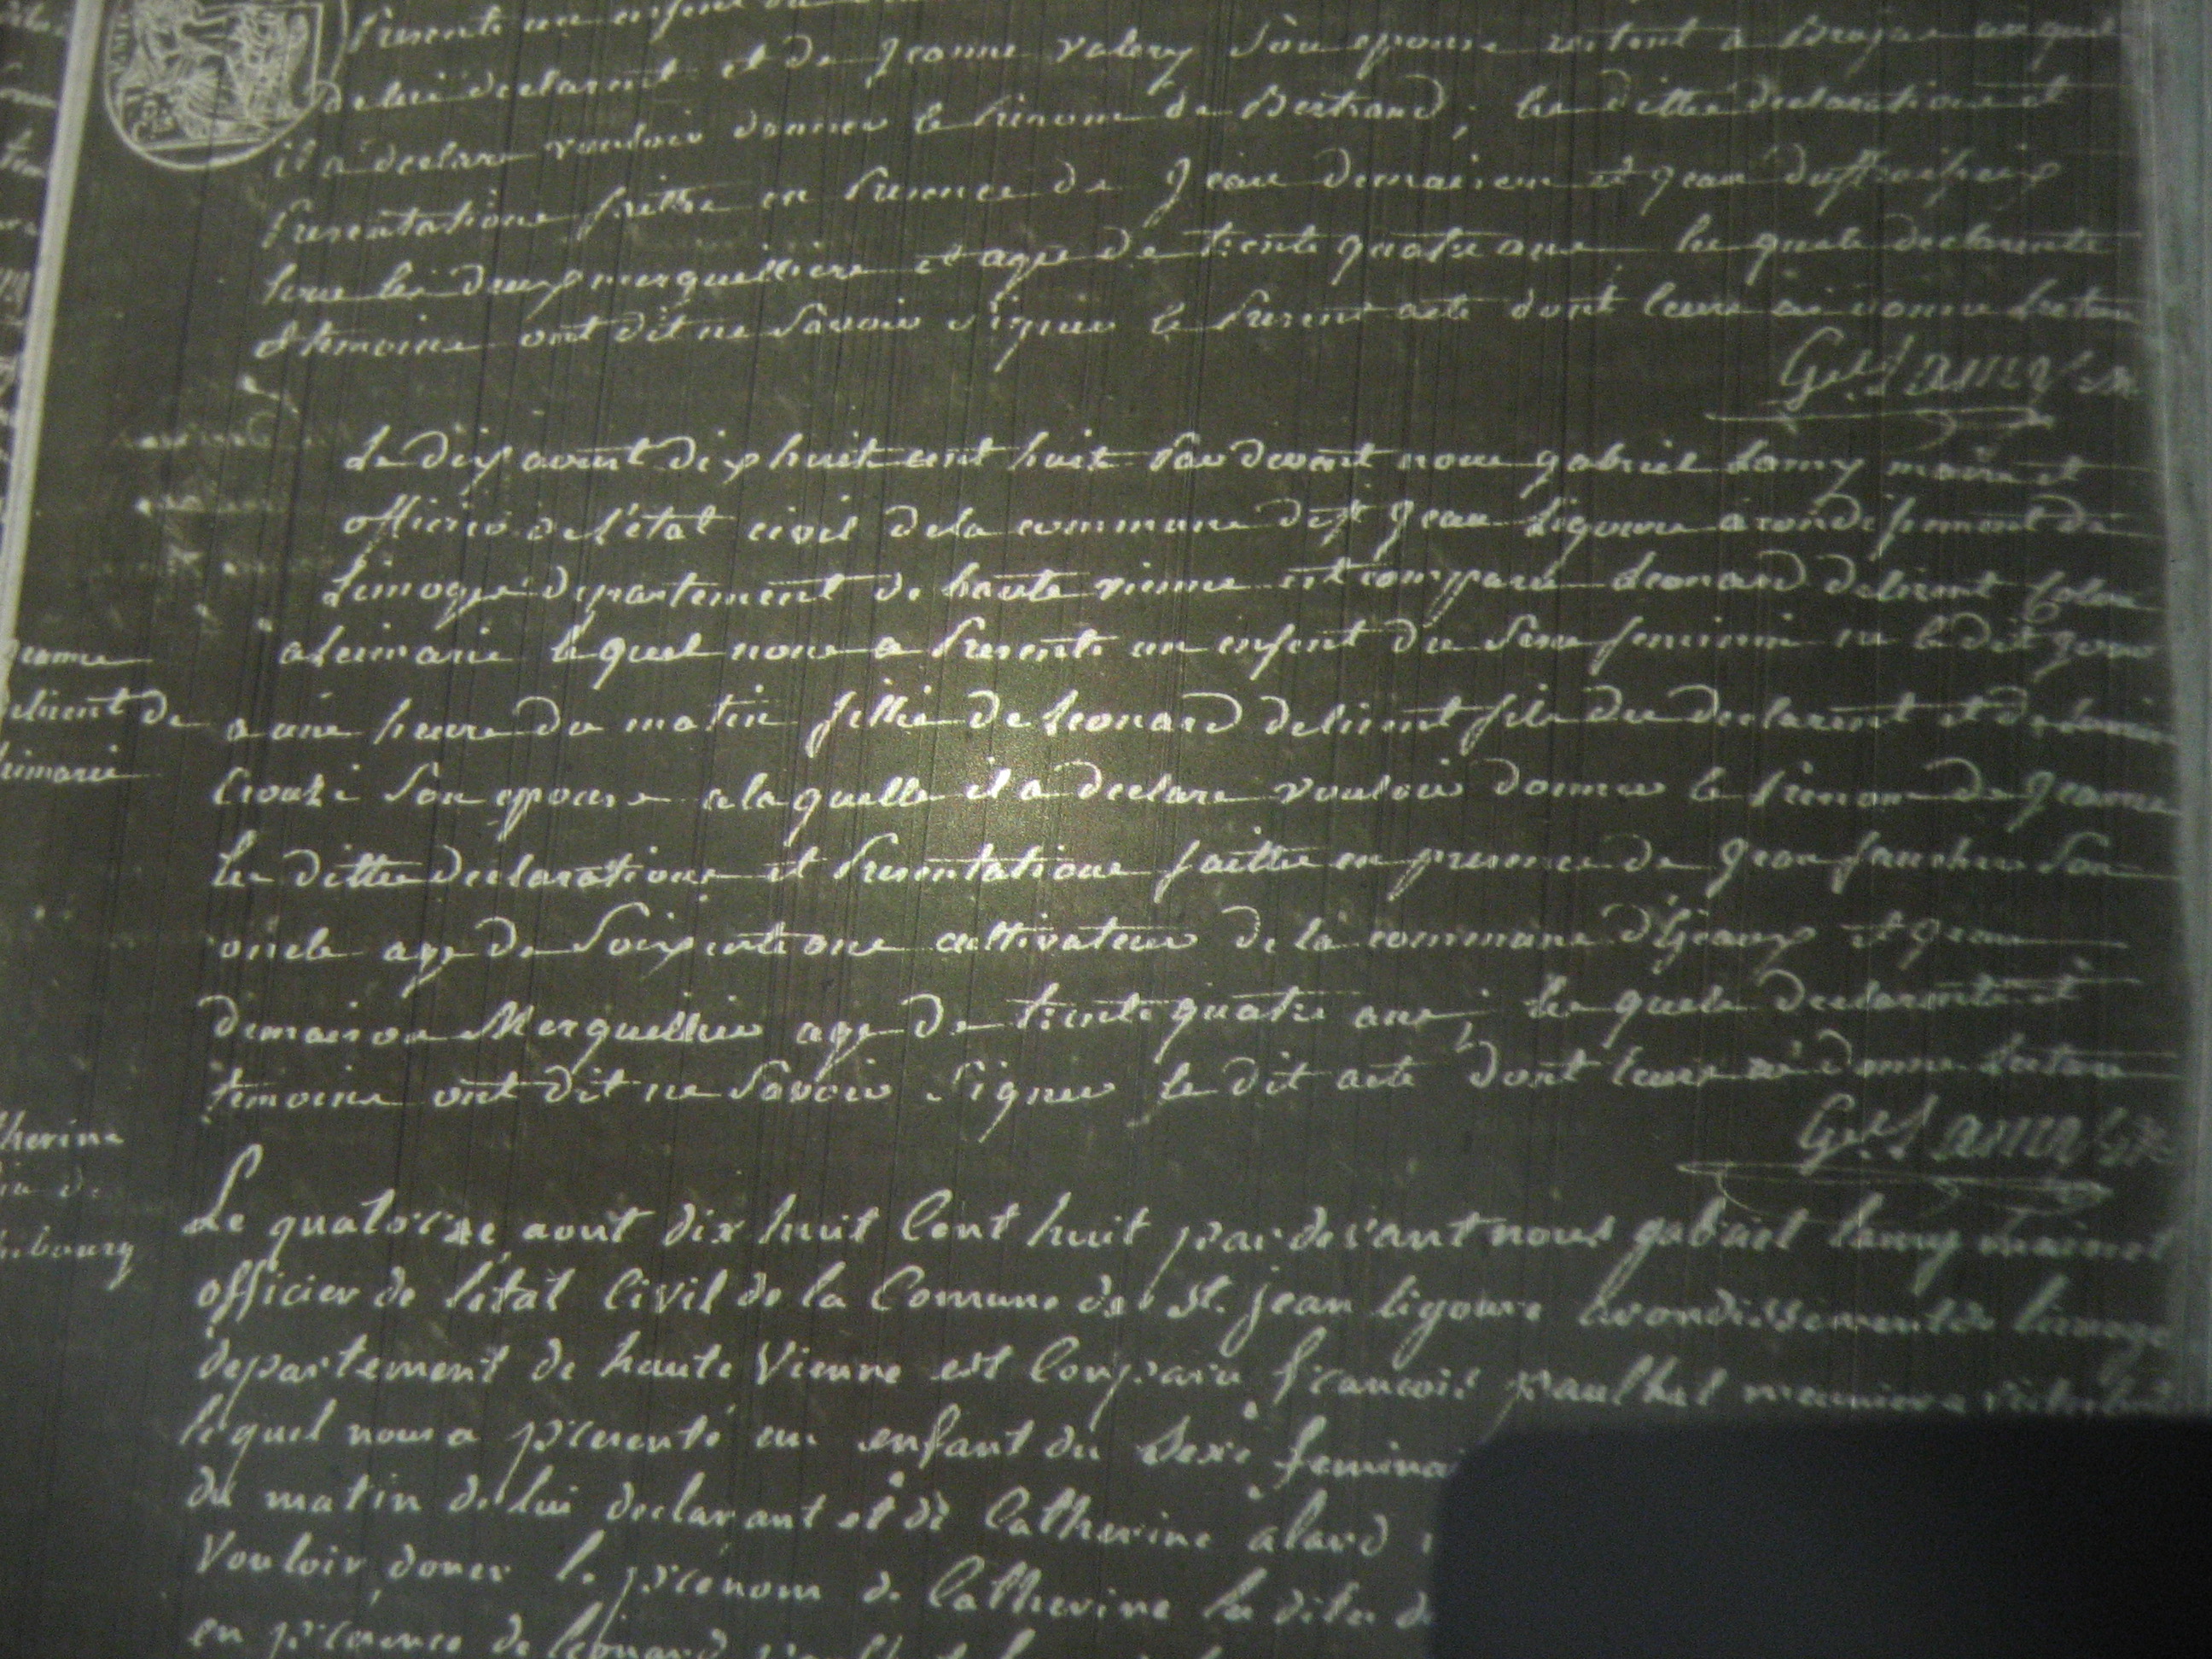 presente un enfent du
de lui declarent et de Jeanne Valery son epouse restent a au quel
il a declare vouloir donner le prenom de Bertrand, les dittes declarations et
presentations faittes en presence de Jean demaison et Jean
tous les deux merguilliers et ages de trente quatre ans, les quels declarents
et temoins ont dit ne savoir signer le present acte dont leurs ai donne lecture
G.el Lamy
Le dix aout dix huit cent huit par devent nous gabriel Lamy maire et
officier de l'etat civil de la commune de st Jean Ligoure arondissement de
Limoges departement de haute vienne est comparu Leonard delient colon
a Leimarie le quel nous a presente un enfent du sexe feminin ne le dit jour
a une heure du matin fillie de Leonard delient fils du declarent et de
Crouzi son epouse a la quelle il a declare vouloir donner le prenom de Jeanne
les dittes declarations et presentations faittes en presence de Jean faucher son
oncle age de soixente ans cultivateur de la commune d'Ijeaux et Jean
demaison Merguillier age de trente quatre ans, les quels declarents et
temoins ont dit ne savoir signer le dit acte dont leurs ai donne lecture
G.el Lamy
Jeanne
delient de
Leimarie
Le quatorze aout dix huit Cent huit par devant nous gabriel lamy maire et
officier de l'etat Civil de la Comune de St. jean ligoure arondissement de limoge
departement de haute Vienne est Conparu francois paulhat meunier a
lequel nous a presenté un enfant du sexe femina
du matin de lui declarant et de Catherine alard
Vouloir doner le prénom de Catherine la dites de
en présence de léonard